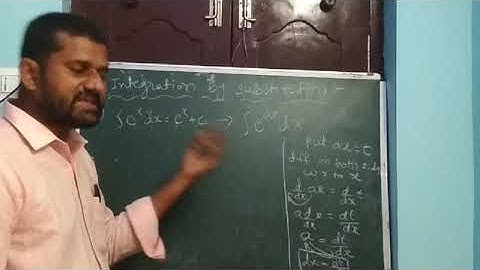 Integration by substitution
∫eˣdx = eˣ+c → ∫eᵃˣdx
put ax = t
diff on both sides
w r to x
d/dx ax = d/dx t
a d/dx x = dt/dx
a = dt/dx
dx = dt